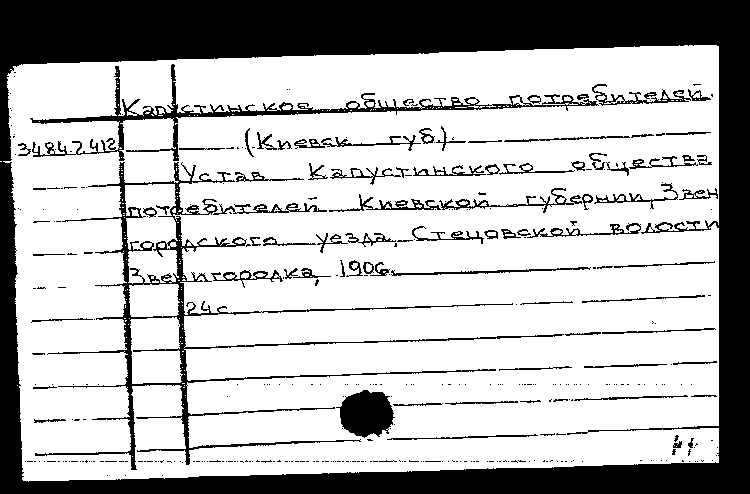 Капустинское общество потребителей.
34847412 (Киевск губ.).
Устав Капустинского общества
потребителей Киевской губернии, Звен
городского уезда, Стецовской волости
Звенигородка, 1906.
24 с